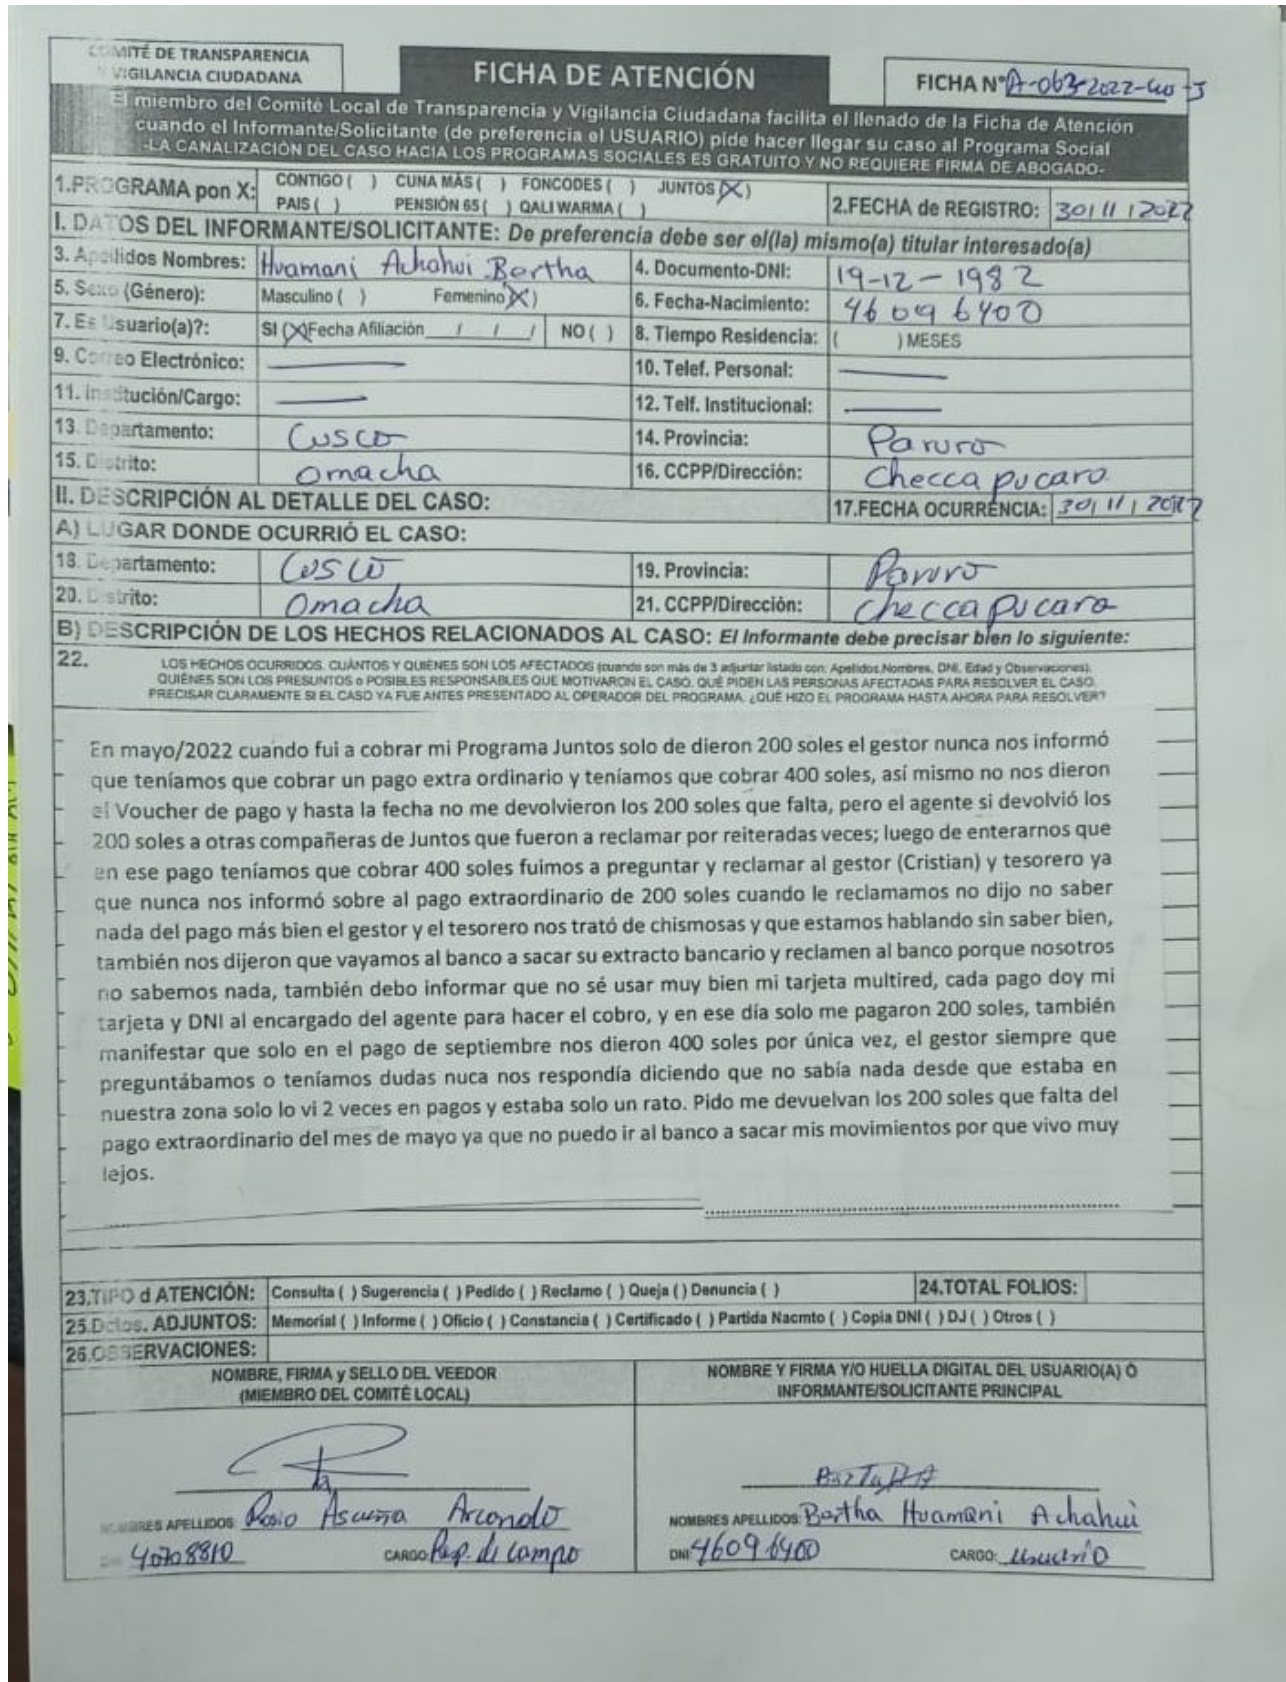 COMITÉ DE TRANSPARENCIA
Y VIGILANCIA CIUDADANA
FICHA DE ATENCIÓN
FICHA N° A-063-2022-
El miembro del Comité Local de Transparencia y Vigilancia Ciudadana facilita el llenado de la Ficha de Atención
cuando el Informante/Solicitante (de preferencia el USUARIO) pide hacer llegar su caso al Programa Social
-LA CANALIZACIÓN DEL CASO HACIA LOS PROGRAMAS SOCIALES ES GRATUITO Y NO REQUIERE FIRMA DE ABOGADO-
1.PROGRAMA pon X: CONTIGO ( ) CUNA MÁS ( ) FONCODES ( ) JUNTOS (X)
PAIS ( ) PENSIÓN 65 ( ) QALI WARMA ( )
2.FECHA de REGISTRO: 30/11/2022
I. DATOS DEL INFORMANTE/SOLICITANTE: De preferencia debe ser el(la) mismo(a) titular interesado(a)
3. Apellidos Nombres: Huamani Achahui Bertha 4. Documento-DNI: 19-12-1982
5. Sexo (Género): Masculino ( ) Femenino (X) 6. Fecha-Nacimiento: 46096400
7. Es Usuario(a)?: SI (X) Fecha Afiliación / / / NO ( ) 8. Tiempo Residencia: ( ) MESES
9. Correo Electrónico: 10. Telef. Personal:
11. Institución/Cargo: 12. Telf. Institucional:
13. Departamento: Cusco 14. Provincia: Paruro
15. Distrito: Omacha 16. CCPP/Dirección: Checcapucara
II. DESCRIPCIÓN AL DETALLE DEL CASO: 17.FECHA OCURRENCIA: 30/11/2022
A) LUGAR DONDE OCURRIÓ EL CASO:
18. Departamento: Cusco 19. Provincia: Paruro
20. Distrito: Omacha 21. CCPP/Dirección: Checcapucara
B) DESCRIPCIÓN DE LOS HECHOS RELACIONADOS AL CASO: El Informante debe precisar bien lo siguiente:
22. LOS HECHOS OCURRIDOS. CUÁNTOS Y QUIENES SON LOS AFECTADOS (cuando son más de 3 adjuntar listado con: Apellidos,Nombres, DNI, Edad y Observaciones).
QUIÉNES SON LOS PRESUNTOS o POSIBLES RESPONSABLES QUE MOTIVARON EL CASO. QUÉ PIDEN LAS PERSONAS AFECTADAS PARA RESOLVER EL CASO.
PRECISAR CLARAMENTE SI EL CASO YA FUE ANTES PRESENTADO AL OPERADOR DEL PROGRAMA. ¿QUÉ HIZO EL PROGRAMA HASTA AHORA PARA RESOLVER?
En mayo/2022 cuando fui a cobrar mi Programa Juntos solo de dieron 200 soles el gestor nunca nos informó
que teníamos que cobrar un pago extra ordinario y teníamos que cobrar 400 soles, así mismo no nos dieron
el Voucher de pago y hasta la fecha no me devolvieron los 200 soles que falta, pero el agente si devolvió los
200 soles a otras compañeras de Juntos que fueron a reclamar por reiteradas veces; luego de enterarnos que
en ese pago teníamos que cobrar 400 soles fuimos a preguntar y reclamar al gestor (Cristian) y tesorero ya
que nunca nos informó sobre al pago extraordinario de 200 soles cuando le reclamamos no dijo no saber
nada del pago más bien el gestor y el tesorero nos trató de chismosas y que estamos hablando sin saber bien,
también nos dijeron que vayamos al banco a sacar su extracto bancario y reclamen al banco porque nosotros
no sabemos nada, también debo informar que no sé usar muy bien mi tarjeta multired, cada pago doy mi
tarjeta y DNI al encargado del agente para hacer el cobro, y en ese día solo me pagaron 200 soles, también
manifestar que solo en el pago de septiembre nos dieron 400 soles por única vez, el gestor siempre que
preguntábamos o teníamos dudas nuca nos respondía diciendo que no sabía nada desde que estaba en
nuestra zona solo lo vi 2 veces en pagos y estaba solo un rato. Pido me devuelvan los 200 soles que falta del
pago extraordinario del mes de mayo ya que no puedo ir al banco a sacar mis movimientos por que vivo muy
lejos.
23.TIPO d ATENCIÓN: Consulta ( ) Sugerencia ( ) Pedido ( ) Reclamo ( ) Queja ( ) Denuncia ( ) 24.TOTAL FOLIOS:
25.Dctos. ADJUNTOS: Memorial ( ) Informe ( ) Oficio ( ) Constancia ( ) Certificado ( ) Partida Nacmto ( ) Copia DNI ( ) DJ ( ) Otros ( )
26.OBSERVACIONES:
NOMBRE, FIRMA y SELLO DEL VEEDOR
(MIEMBRO DEL COMITÉ LOCAL)
NOMBRE Y FIRMA Y/O HUELLA DIGITAL DEL USUARIO(A) Ó
INFORMANTE/SOLICITANTE PRINCIPAL
NOMBRES APELLIDOS: Arcondo
DNI: 40708810 CARGO: Resp. de campo
NOMBRES APELLIDOS: Bertha Huamani Achahui
DNI: 46096400 CARGO: Usuario